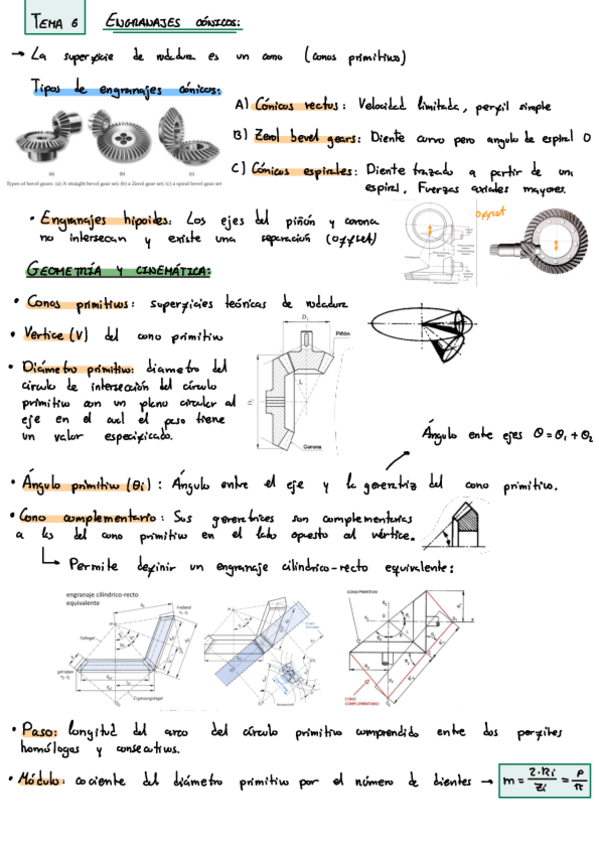 TEMA 6 ENGRANAJES CÓNICOS:
→ La superficie de rodadura es un cono (conos primitivos)
Tipos de engranajes cónicos:
A) Cónicos rectos: Velocidad limitada, perfil simple
B) Zerol bevel gears: Diente curvo pero angulo de espiral 0
C) Cónicos espirales: Diente trazado a partir de una
espiral. Fuerzas axiales mayores.
(a) (b) (c)
Types of bevel gears. (a) A straight bevel gear set; (b) a Zerol gear set; (c) a spiral bevel gear set
• Engranajes hipoides: Los ejes del piñón y corona
no intersecan y existe una separación (offset)
offset
GEOMETRÍA Y CINEMÁTICA:
• Conos primitivos: superficies teóricas de rodadura
• Vertice (V) del cono primitivo
• Diámetro primitivo: diametro del
circulo de intersección del círculo
primitivo con un plano circular al
eje en el cual el paso tiene
un valor especificado.
Piñón
Corona
Ángulo ente ejes θ = θ1 + θ2
• Ángulo primitivo (θi): Ángulo entre el eje y la generatriz del cono primitivo.
• Cono complementario: Sus generatrices son complementarias
a las del cono primitivo en el lado opuesto al vértice.
Permite definir un engranaje cilindrico-recto equivalente:
engranaje cilíndrico-recto
equivalente
CONO PRIMITIVO
CONO
COMPLEMENTARIO
• Paso: longitud del arco del círculo primitivo comprendido entre dos perfiles
homólogos y consecutivos.
• Módulo: cociente del diámetro primitivo por el número de dientes → m = 2·Ri/Zi = P/π